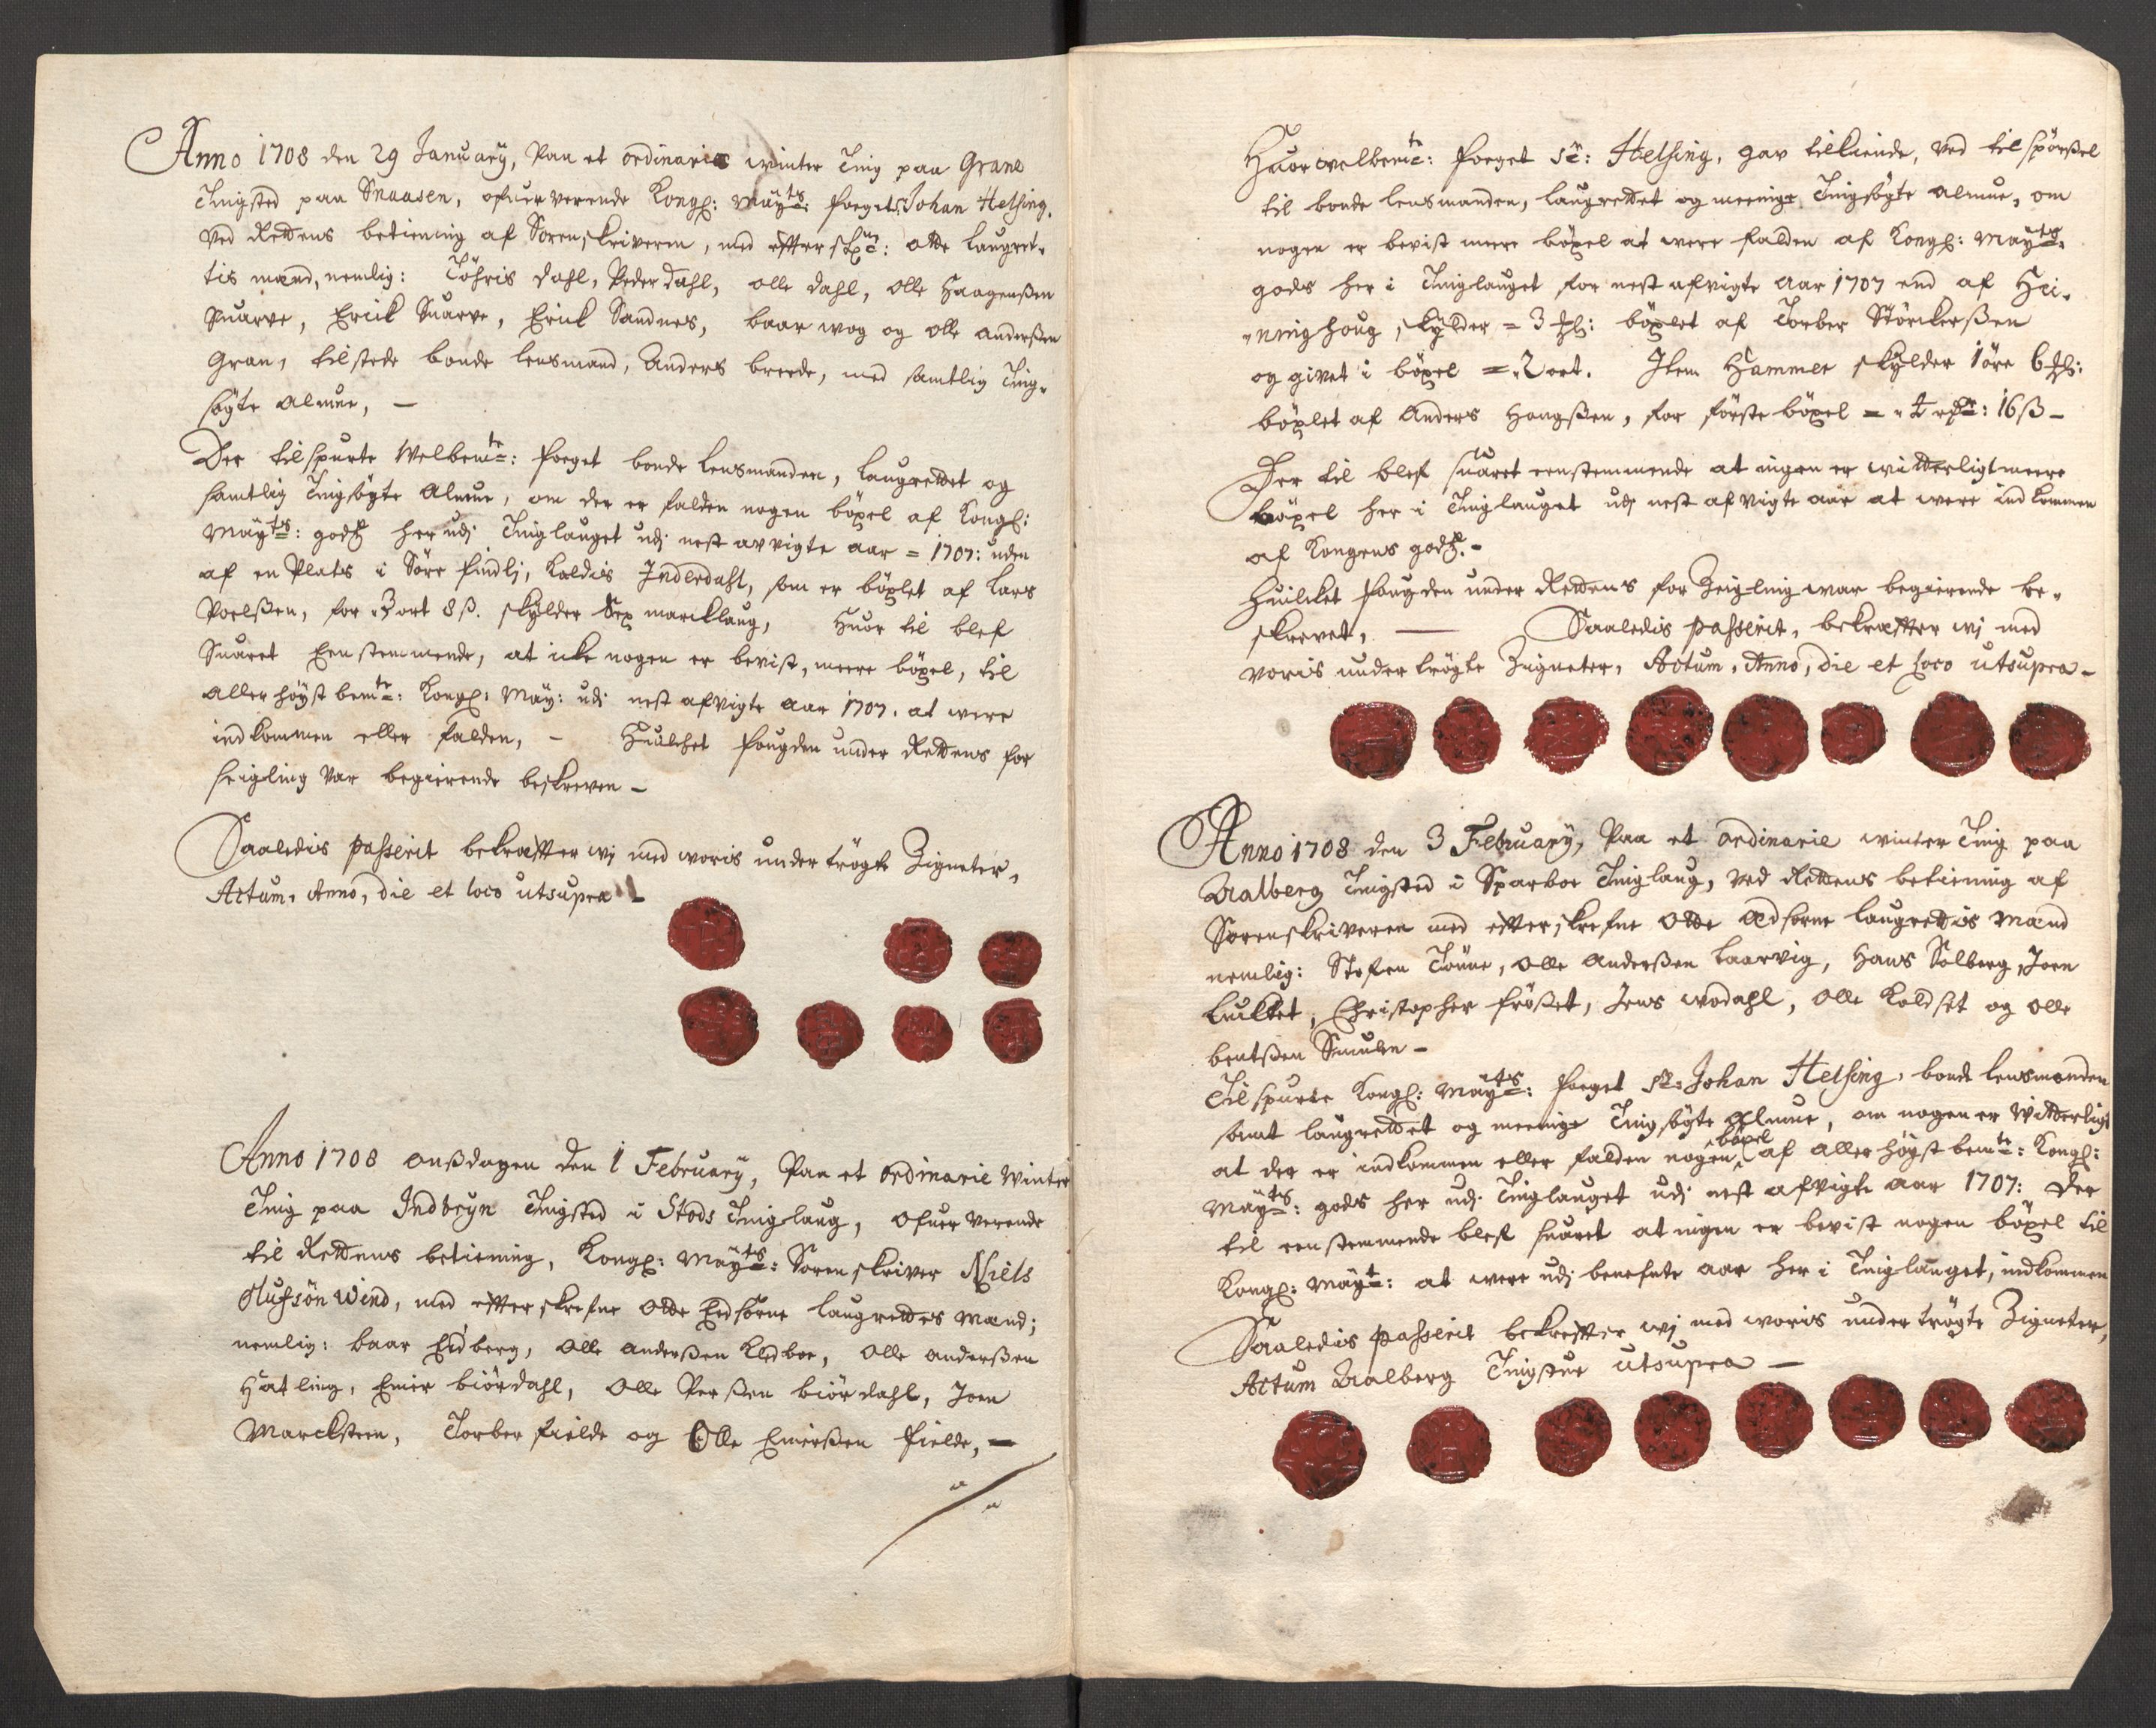 Anno 1708 den 29 January, Paa et ordinarie winter Ting paa Grane
Tingsted paa Snaasen, ofuerverende Kongl: Mayts: foeget Johan Helsing,
Ved Rettens betiening af Sorenskriveren, med effterskr: otte Laugret-
tis mænd, nemlig: Töhris Dahl, Peder Dahl, Olle Dahl, Olle Haagenßen
Snarve, Erick Suarve, Erick Sandnes, baar wog og Olle Anderßen
Gran, tilstede bonde lensmand, Anders breede, med samtlig Ting-
søgte Almue, -
Der tilspurte Welbemte: foeget bonde Lensmanden, Laugrettet og
samtlig Tingsøgte Almue, om der er falden nogen böxel af Kongl:
Mayts: godtz her udj Tinglauget udj nest avvigte aar = 1707: uden
af en Plats i Sörr findlj, kaldis Inderdahl, som er böxlet af Lars
Poelßen, for 3 ort 8 ß. skylder Sex marcklaug, Huor til blef
Suaret Eenstemmende, at icke nogen er bevist, meere böxel, til
allerhöyst bemte: Kongl: May: udj nest afvigte aar 1707. at were
indkommen eller falden, - Huilchet fougden under Rettens for
seigling var begierende beskreven -
Saaledis passerit bekræffter wj med woris undertrögte Zigneter,
Actum, Anno, die et loco utsupra -
Anno 1708 onßdagen den 1 February, Paa et ordinarie Winter
Ting paa Indbryn Tingsted i Stods Tinglaug, ofuerverende
til Rettens betiening, Kongl: Mayts: Sorenskriver Niels
Olufsön Wind, med effterskrefne otte Eedsorne laugrettes mænd;
nemlig: baar Eidberg, Olle Anderßen Kledboe, Olle Anderßen
Hatling, Einer biördahl, Olle Perßen biördahl, Joen
Marcksteen, Torber fielde og Olle Einerßen fielde, -
Huor welbemte: foeget Sr: Helsing, gav tilkiende, ved tilspörßel
til bonde lensmanden, laugrettet og meenige Tingsøgte almue, om
nogen er bevist meere böxel at were falden af Kongl: Mayts:
gods her i Tinglauget for nest afvigte Aar 1707 end af Hei-
ninghoug, skylder = 3 böxlet af Torber Störckerßen
og givet i böxel = 2 ort. Item Hammer skylder 1 öre 6
böxlet af Anders Haagßen, for förste böxel = 16 ß -
Der til blef suaret eenstemmende at ingen er witterligt meere
böxel her i Tinglauget udj nest afvigte aar at were indkommen
af Kongens godtz. -
Huilcket fougden under Rettens for Zeigling war begierende be-
skrevet, - Saaledis passerit, bekræffter wj med
voris undertrögte Zigneter, Actum, Anno, die et Loco utsupra -
Anno 1708 den 3 February, Paa et ordinarie winter Ting paa
Aalberg Tingsted i Sparboe Tinglaug, ved Rettens betiening af
Sorenskriveren med effterskrefne otte Edsorne laugrettis mænd
nemlig: Steffen Tönne, Olle Anderßen Laarvig, Hans Solberg, Joen
Luckket, Christopher fröset, Jens Wodahl, Olle Koldset og Olle
bentßen Smulen -
Tilspurte Kongl: Mayts: foeget Sr: Johan Helsing, bonde lensmanden
samt laugrettet og meenige Tingsøgte Almue, om nogen er Witterligt
at der er indkommen eller falden nogen böxel af allerhöystbemte: Kongl:
Mayts: gods her udj Tinglauget udj nest afvigte aar 1707: Der
til eenstemmende blef suaret at ingen er bevist nogen böxel til
Kongl: Mayt: at were udj benefnte aar her i Tinglauget, indkommen
Saaledis passerit bekreffter wj med woris undertrögte Zigneter,
Actum Aalberg Tingstue utsupra -